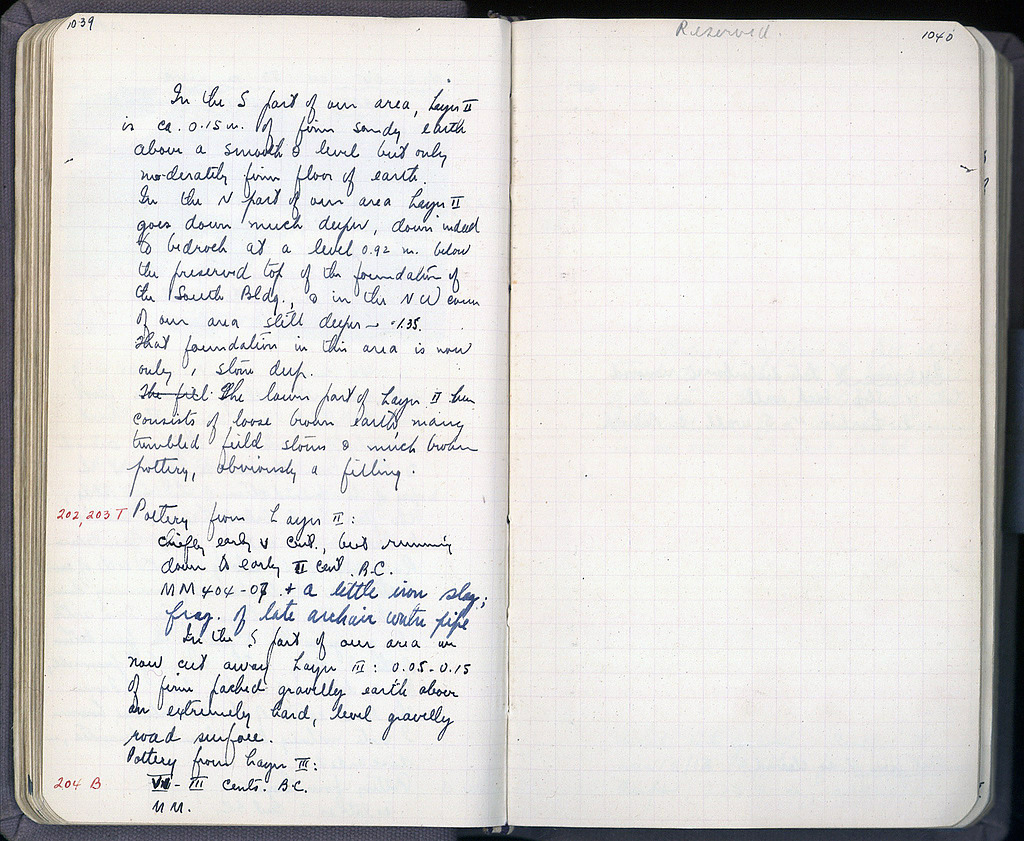 1039
In the S part of our area, Layer II
is ca. 0.15 m. of firm sandy earth
above a smooth & level but only
moderately firm floor of earth.
In the N part of our area Layer II
goes down much deeper, down indeed
to bedrock at a level 0.92 m. below
the preserved top of the foundation of
the South Bldg., & in the NW corner
of our area still deeper – -1.35.
That foundation in this area is now
only 1 stone deep.
The fill The lower part of Layer II here
consists of loose brown earth, many
tumbled field stones & much brown
pottery, obviously a filling.
202, 203 T Pottery from Layer II:
chiefly early V cent., but running
down to early II cent. B.C.
MM 404-07 + a little iron slag;
frag. of late archaic water pipe
In the S part of our area we
now cut away Layer III: 0.05-0.15
of firm packed gravelly earth above
an extremely hard, level gravelly
road surface.
Pottery from Layer III:
204 B - III cents. B.C.
Reserved.
1040